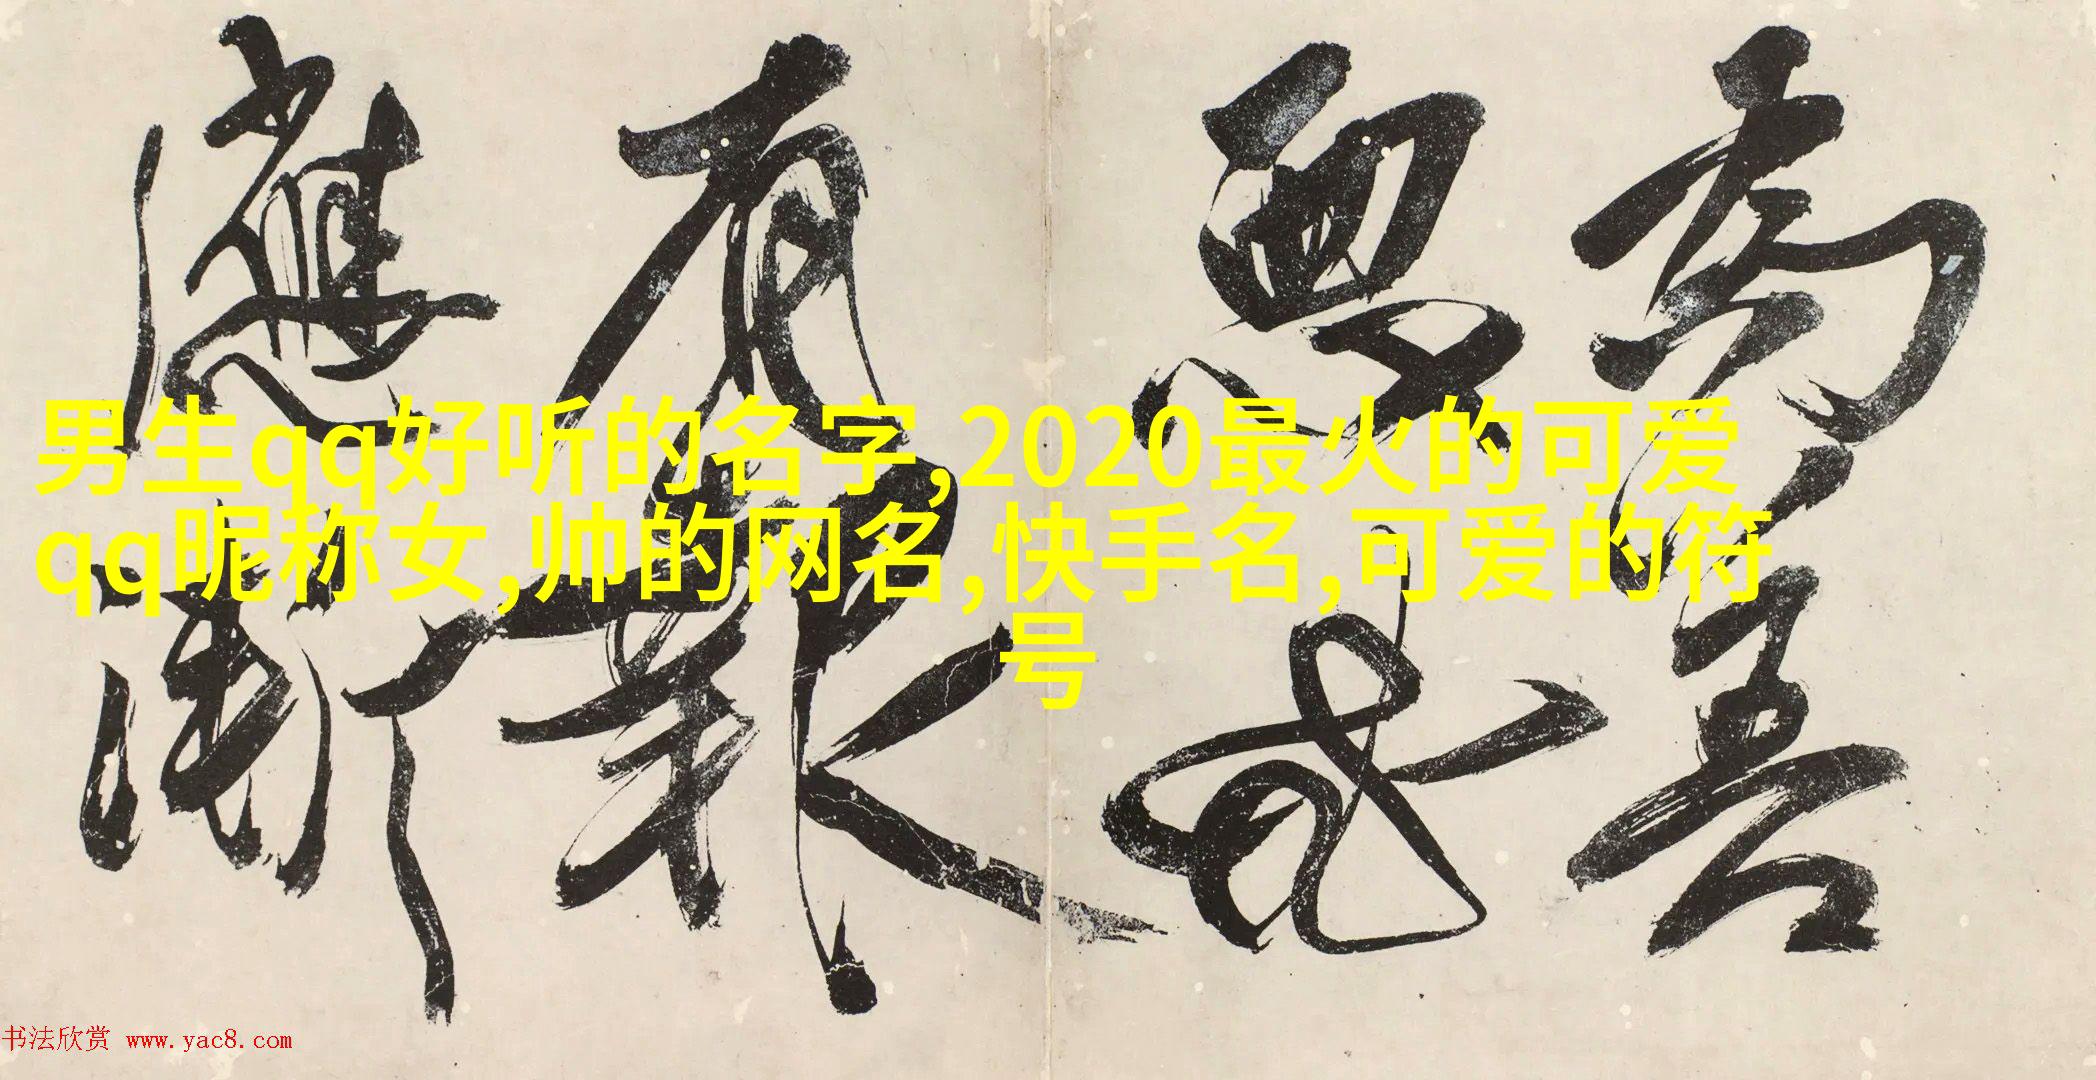 為善
要□
有報
應漸
男生qq好听的名字,2020最火的可爱
qq昵称女,帅的网名,快手名,可爱的符
号
书法欣赏 www.yac8.com